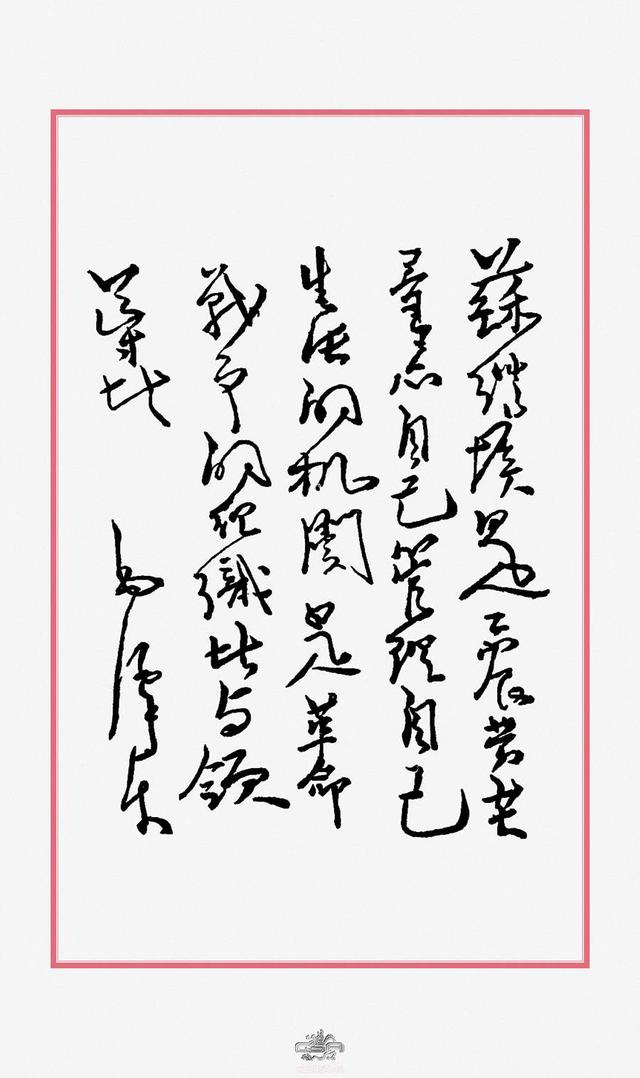 蘇維埃是工農劳苦
羣众自己管理自己
生活的机關是革命
戰争的组織者与領
導者 毛澤东